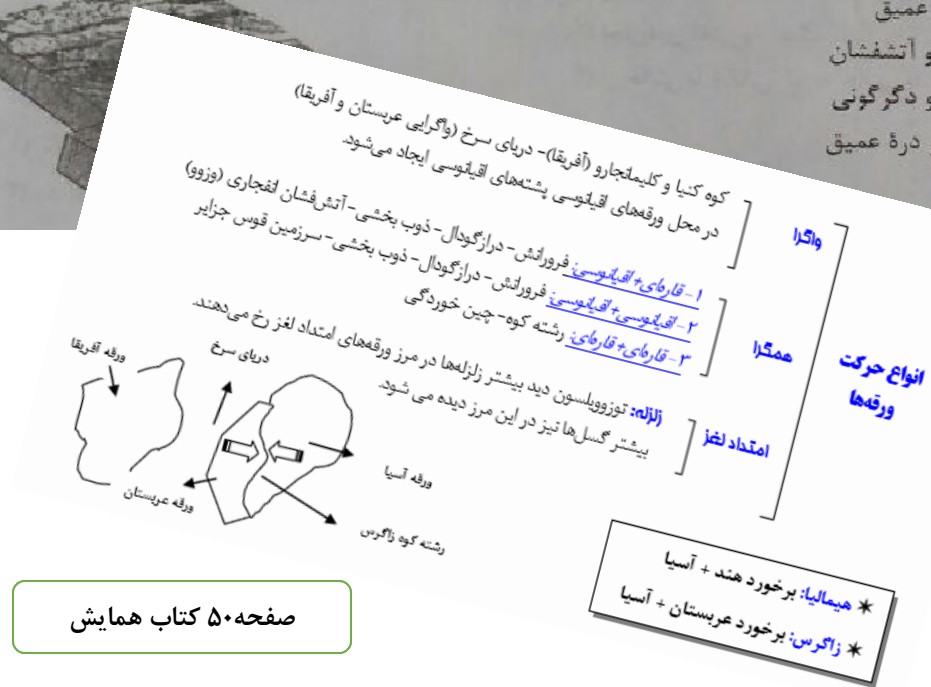 عمیق
و آتشفشان
و دگرگونی
درهٔ عمیق
انواع حرکت
ورقه‌ها
واگرا
کوه کنیا و کلیمانجارو (آفریقا)- دریای سرخ (واگرایی عربستان و آفریقا)
در محل ورقه‌های اقیانوسی پشته‌های اقیانوسی ایجاد می‌شود.
همگرا
۱- قاره‌ای+اقیانوسی: فرورانش- درازگودال- ذوب بخشی- آتش‌فشان انفجاری (وزوو)
۲- اقیانوسی+اقیانوسی: فرورانش- درازگودال- ذوب بخشی- سرزمین قوس جزایر
۳- قاره‌ای+قاره‌ای: رشته کوه- چین خوردگی
امتداد لغز
زلزله: توزوویلسون دید بیشتر زلزله‌ها در مرز ورقه‌های امتداد لغز رخ می‌دهند.
بیشتر گسل‌ها نیز در این مرز دیده می شود.
ورقه آفریقا
دریای سرخ
ورقه آسیا
ورقه عربستان
رشته کوه زاگرس
✶ هیمالیا: برخورد هند + آسیا
✶ زاگرس: برخورد عربستان + آسیا
صفحه۵۰ کتاب همایش